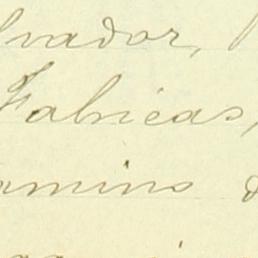 lvador,
Fabricas,
amino